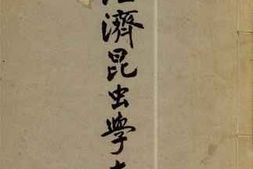 濟昆虫學